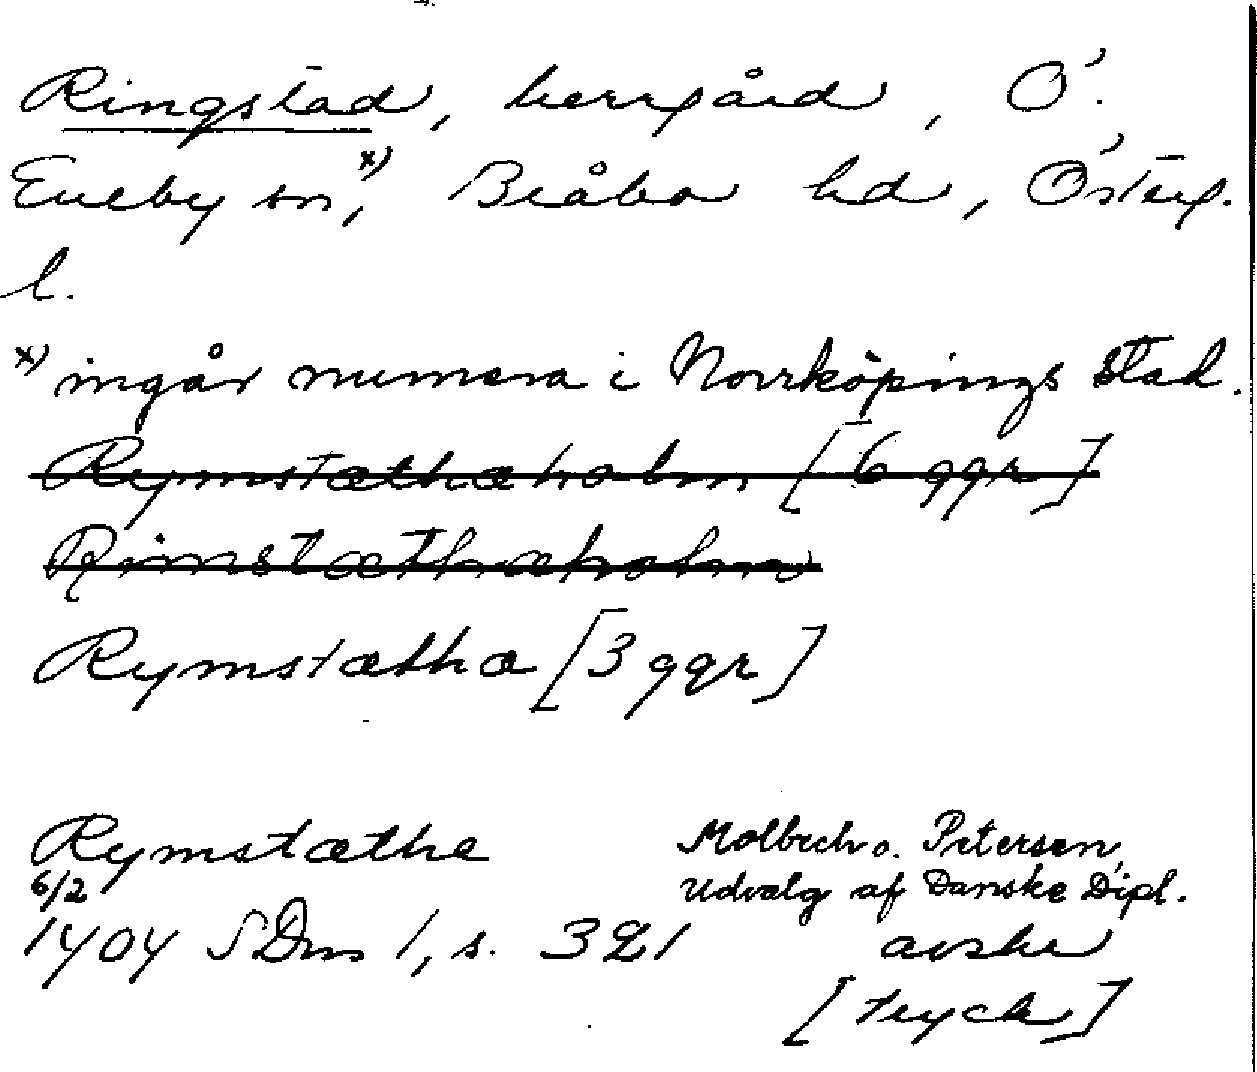 Ringstad, herrgård, Ö.
Eneby sn,x) Bråbo hd, Österg.
l.
x) ingår numera i Norrköpings stad.
Rymstæthæholm [6 ggr]
Rimstæthæholm
Rymstætha [3 ggr]
Rymstæthe
Molbech o. Petersen,
6/2
Udvalg af Danske Dipl.
1404 SDns 1, s. 321
avskr
[tryck]